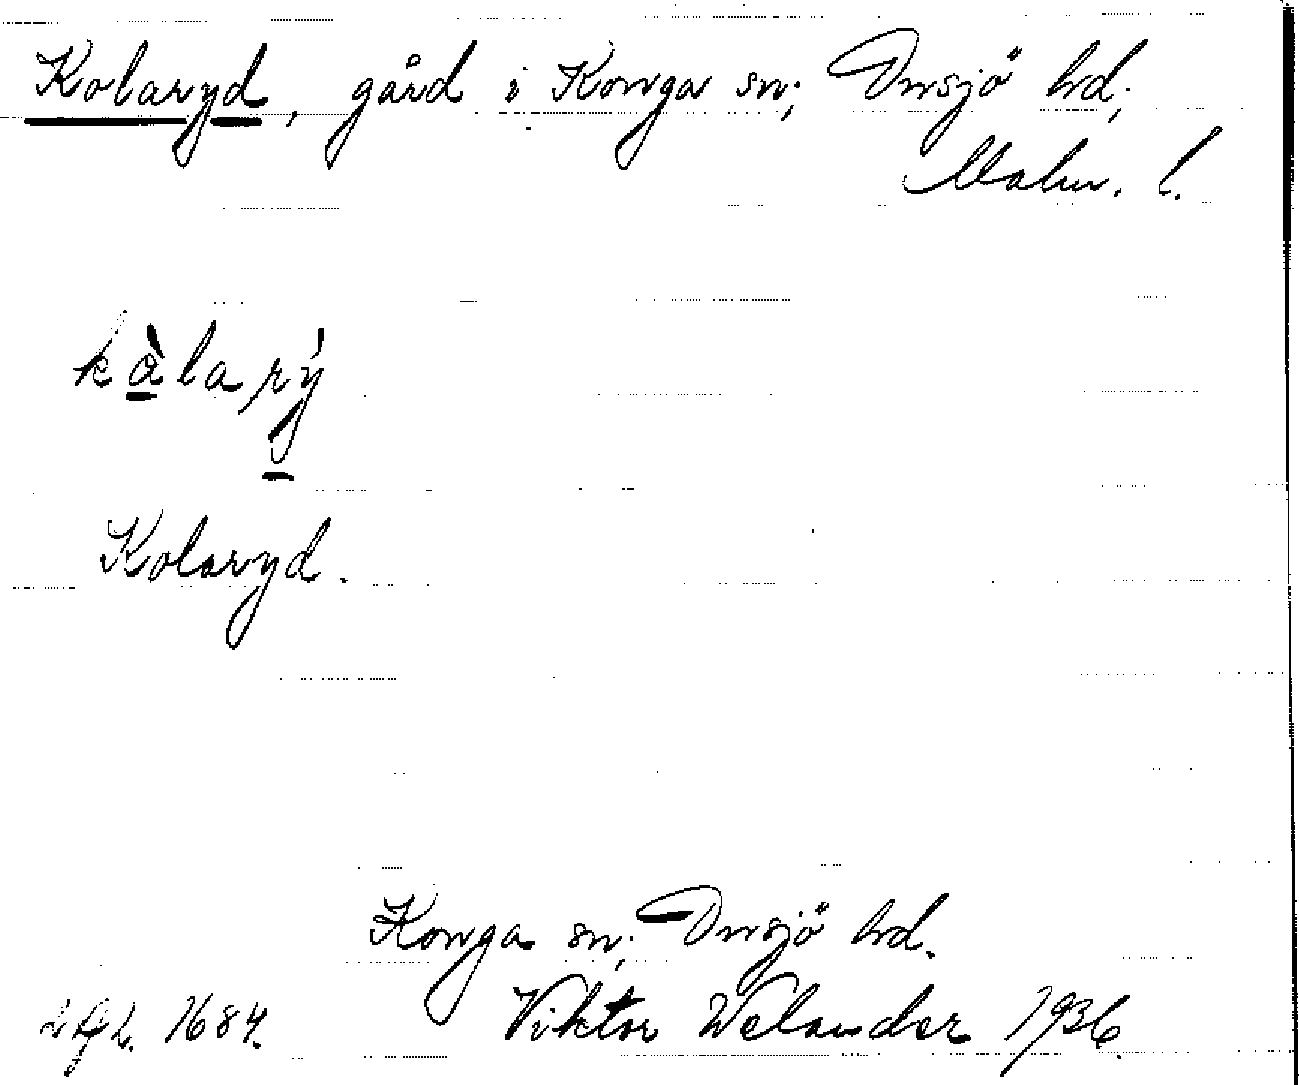 Kolaryd, gård i Konga sn; Onsjö hd;
Malm. l.
kàlarý
Kolaryd.
Konga sn; Onsjö hd.
1684. Viktor Welander 1936.